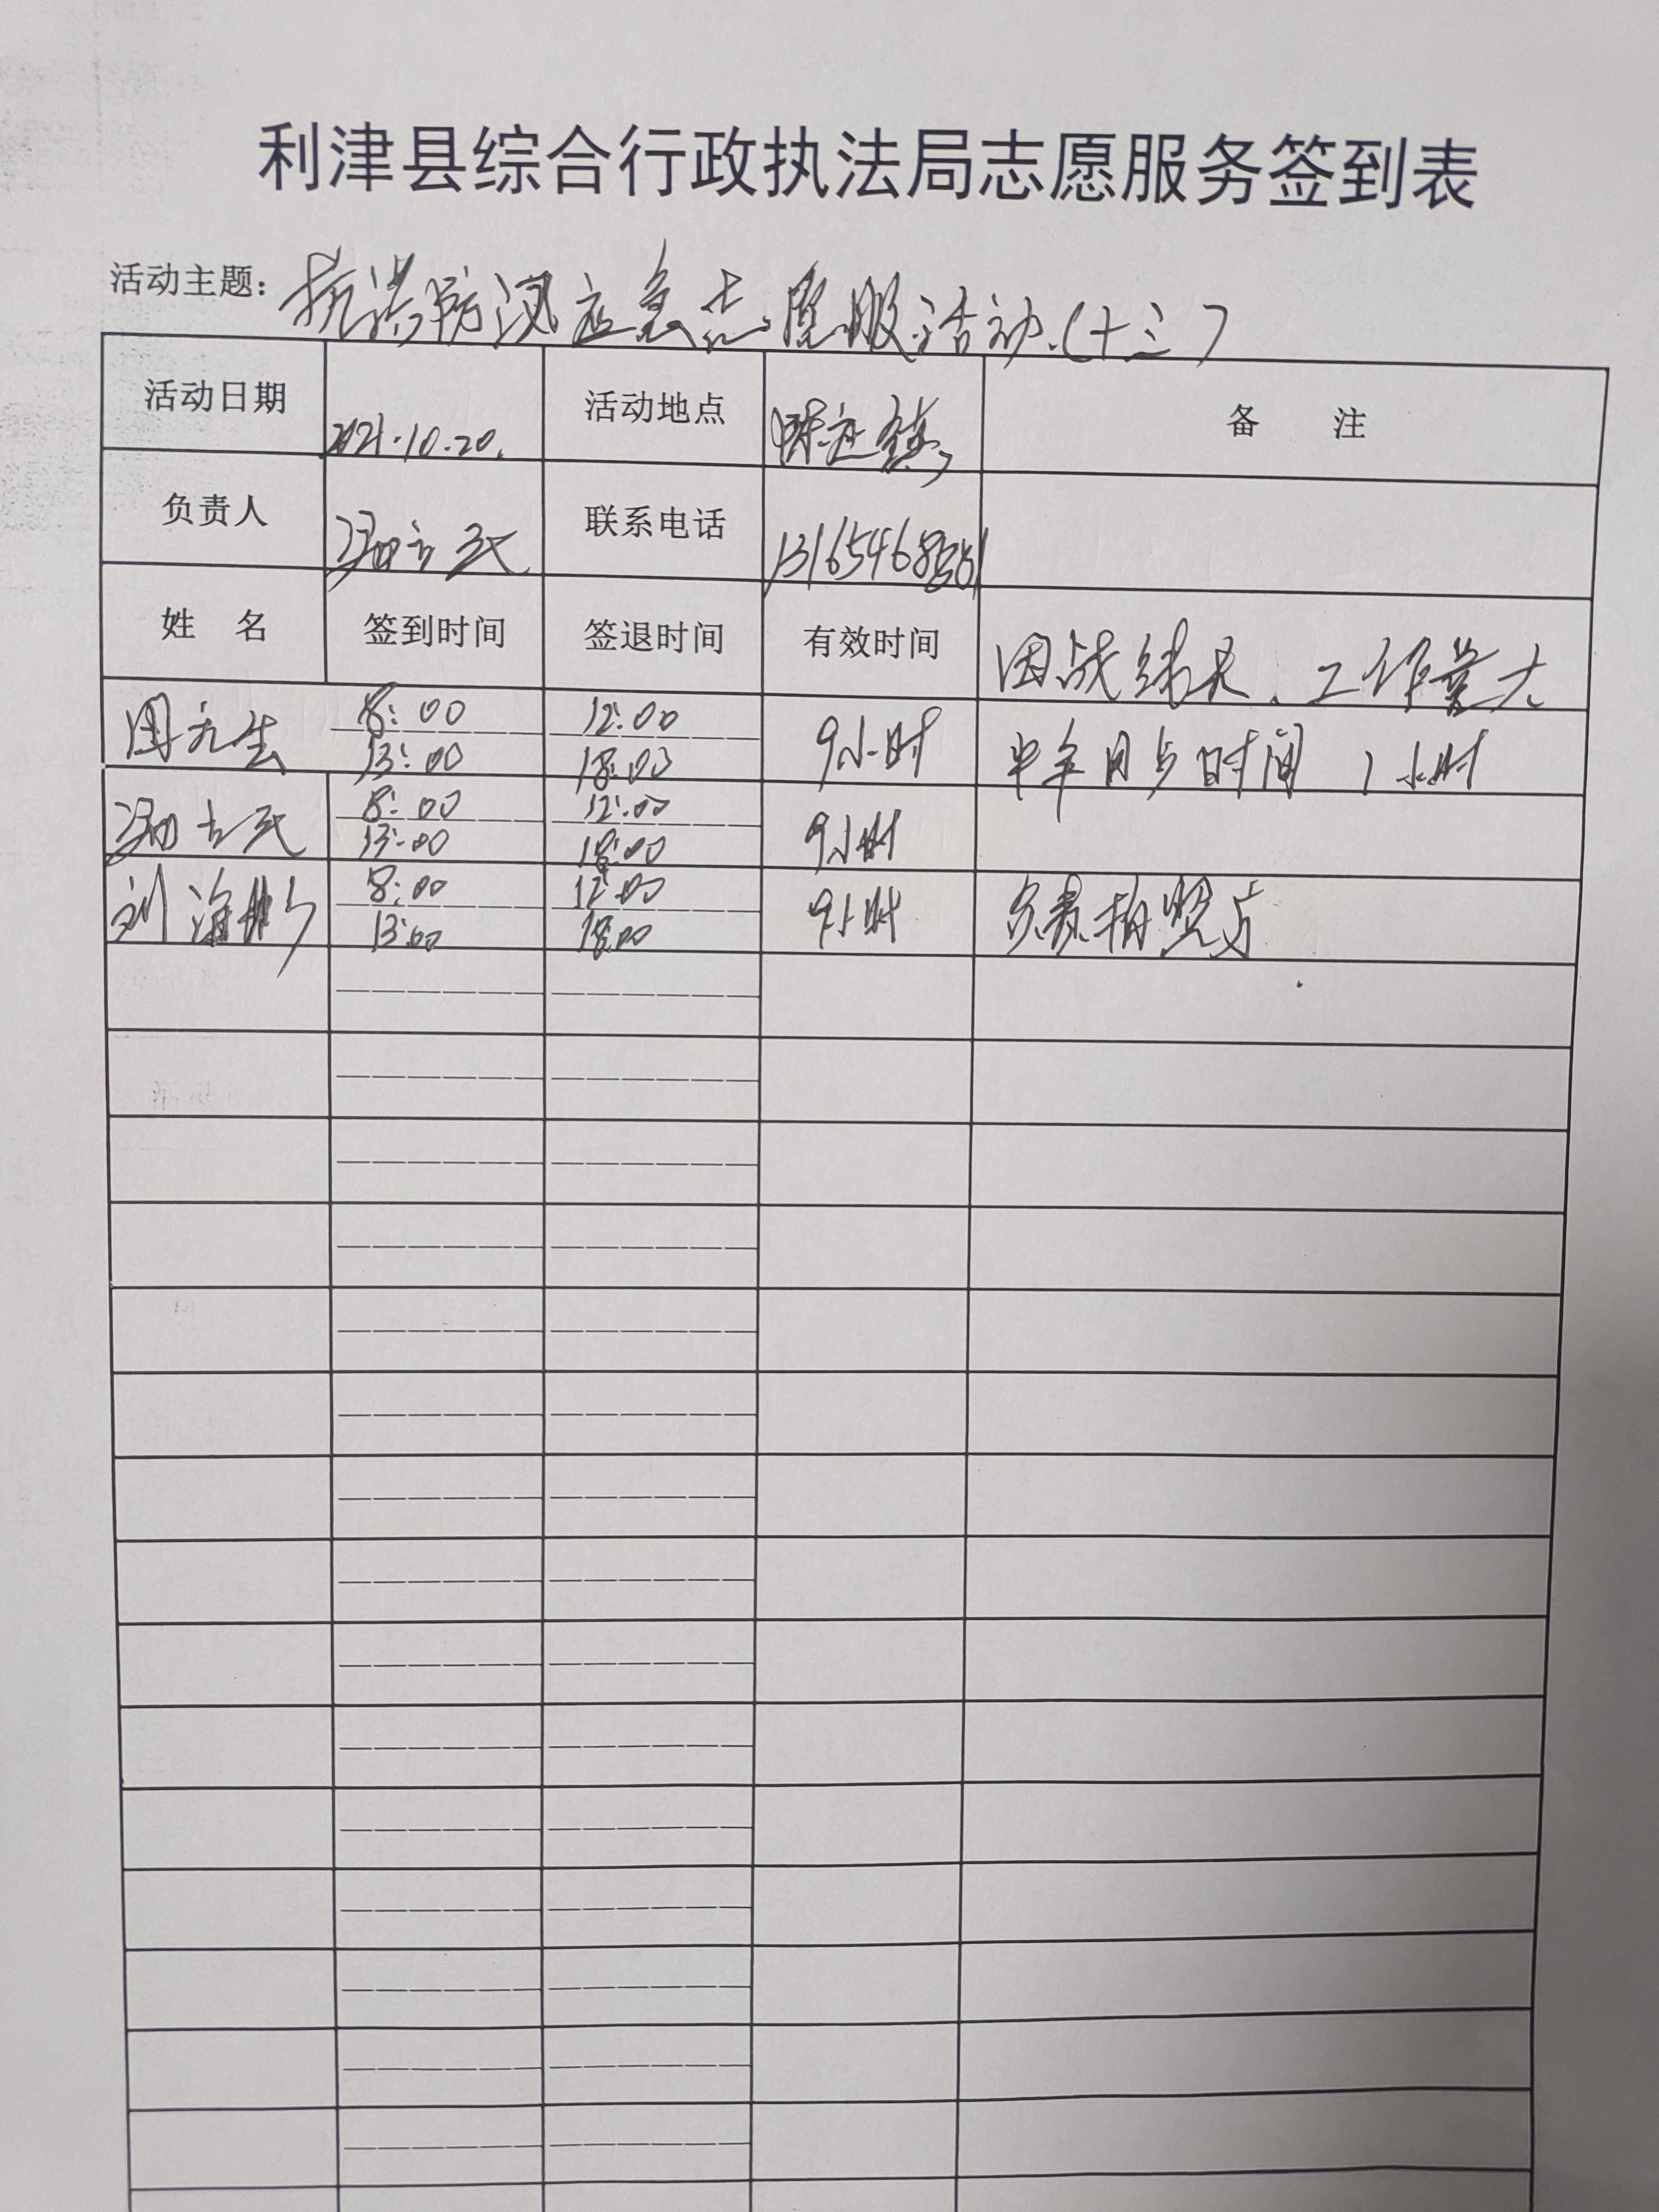 利津县综合行政执法局志愿服务签到表
活动主题：抗洪防汛应急志愿服活动（十三）
活动日期 2021.10.20. 活动地点 陈庄镇 备 注
负责人 联系电话
姓 名 签到时间 签退时间 有效时间 因战线长、工作量大
8:00 12:00
13:00 18:00
9小时 中午用占时间 1小时
8:00 12:00
13:00 18:00
9小时
刘海 8:00 12:00
13:00 18:00
9小时 负责拍照